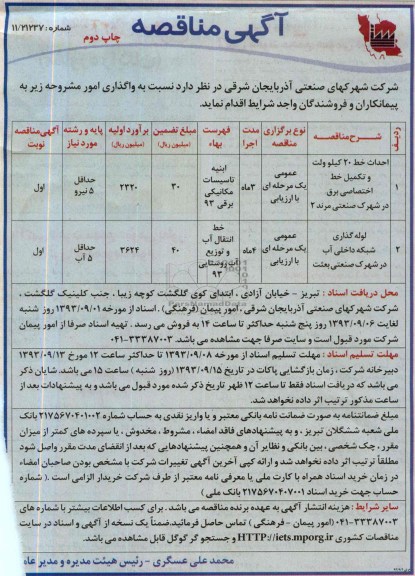 آگهی مناقصه
چاپ دوم
شماره: ۱۱/۲۱۲۳۷
شرکت شهرکهای صنعتی آذربایجان شرقی در نظر دارد نسبت به واگذاری امور مشروحه زیر به
پیمانکاران و فروشندگان واجد شرایط اقدام نماید.
ردیف | شرح مناقصه | نوع برگزاری مناقصه | مدت اجرا | فهرست بهاء | مبلغ تضمین (میلیون ریال) | برآورد اولیه (میلیون ریال) | پایه و رشته مورد نیاز | آگهی مناقصه نوبت
۱ | احداث خط ۲۰ کیلو ولت و تکمیل خط اختصاصی برق در شهرک صنعتی مرند ۲ | عمومی یک مرحله ای با ارزیابی | ۳ماه | ابنیه تاسیسات مکانیکی برقی ۹۳ | ۳۰ | ۲۲۲۰ | حداقل ۵ نیرو | اول
۲ | لوله گذاری شبکه داخلی آب در شهرک صنعتی بعثت | عمومی یک مرحله ای با ارزیابی | ۴ماه | خط انتقال آب و توزیع آب روستایی ۹۳ | ۴۰ | ۳۶۲۴ | حداقل ۵ آب | اول
محل دریافت اسناد : تبریز - خیابان آزادی ، ابتدای کوی گلگشت کوچه زیبا ، جنب کلینیک گلگشت ،
شرکت شهرکهای صنعتی آذربایجان شرقی ، امور پیمان (فرهنگی) . اسناد از مورخه ۱۳۹۳/۰۹/۰۱ روز شنبه
لغایت ۱۳۹۳/۰۹/۰۶ روز پنج شنبه حداکثر تا ساعت ۱۴ به فروش می رسد . تهیه اسناد صرفا از امور پیمان
شرکت مورد قبول است و سایت صرفا جهت مشاهده می باشد. ۳۳۳۸۷۰۰۳-۰۴۱
مهلت تسلیم اسناد : مهلت تسلیم اسناد از مورخه ۱۳۹۳/۰۹/۰۸ تا حداکثر ساعت ۱۲ مورخ ۱۳۹۳/۰۹/۱۳
دبیرخانه شرکت ، زمان بازگشایی پاکات در تاریخ ۱۳۹۳/۰۹/۱۵ (روز شنبه ) ساعت ۱۵ می باشد. شایان ذکر
می باشد که دریافت اسناد فقط تا ساعت ۱۲ ظهر تاریخ ذکر شده مورد قبول می باشد و به پیشنهادات بعد از
ساعت مذکور ترتیب اثر داده نخواهد شد.
مبلغ ضمانتنامه به صورت ضمانت نامه بانکی معتبر و یا واریز نقدی به حساب شماره ۲۱۷۵۶۷۰۴۰۱۰۰۲ بانک
ملی شعبه ششگلان تبریز ، و به پیشنهادهای فاقد امضاء ، مشروط ، مخدوش ، یا سپرده های کمتر از میزان
مقرر ، چک شخصی ، بین بانکی و نظایر آن و همچنین پیشنهادهایی که بعد از انقضای مدت مقرر واصل شود
مطلقاً ترتیب اثر داده نخواهد شد و ارائه کپی آخرین آگهی تغییرات شرکت با مشخص بودن صاحبان امضاء
در زمان خرید اسناد همراه با کارت ملی یا معرفی نامه معتبر از طرف شرکت خریدار الزامی است .( شماره
حساب جهت خرید اسناد ۲۱۷۵۶۷۰۴۰۷۰۰۱ بانک ملی )
سایر شرایط : هزینه انتشار آگهی به عهده برنده مناقصه می باشد . برای کسب اطلاعات بیشتر با شماره های
۳۳۳۸۷۰۰۳-۰۴۱ (امور پیمان - فرهنگی ) تماس حاصل فرمائید.ضمناً یک نسخه از آگهی و اسناد در سایت
مناقصات کشوری HTTP://iets.mporg.ir و جستجو گر گوگل قابل مشاهده می باشد.
محمد علی عسگری - رئیس هیئت مدیره و مدیر عامل